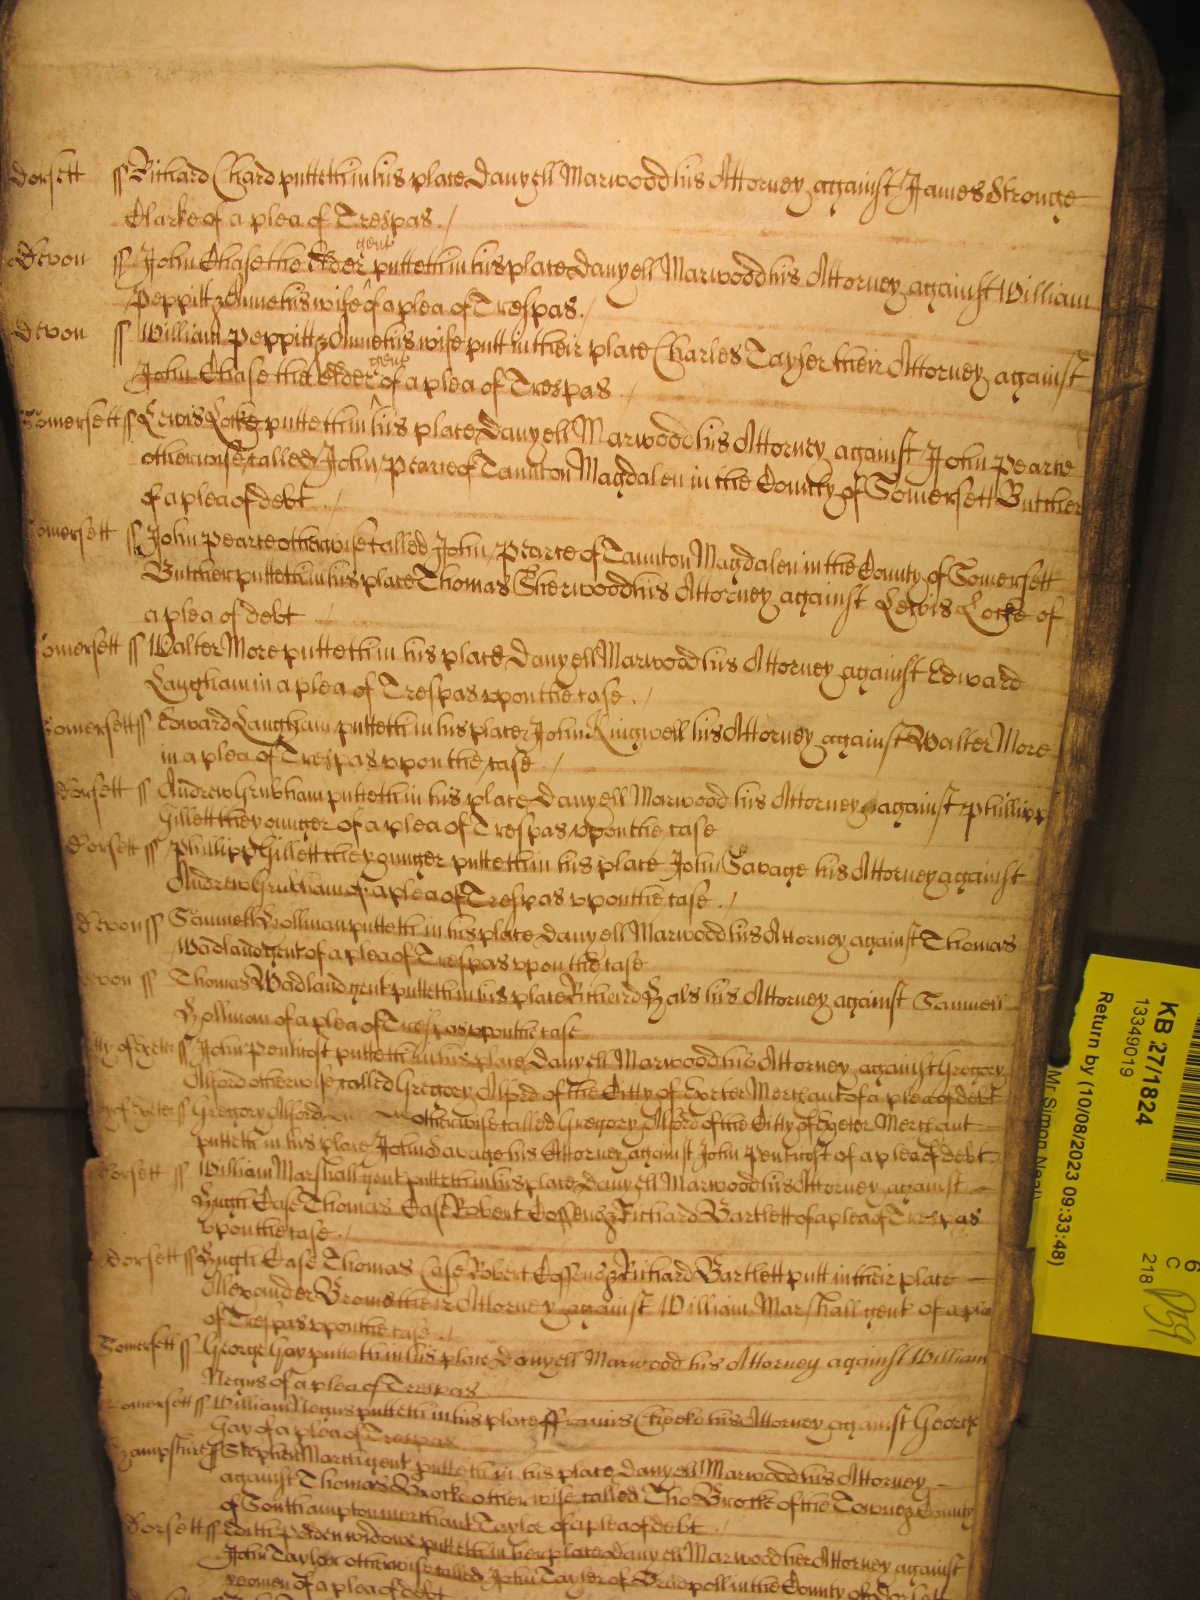 Dorsett ss Richard Chard putteth in his place Danyell Marwood his Attorney against James Strouge
Clarke of a plea of Trespas ./
Devon ss John Chase the Elder gent putteth in his place Danyell Marwood his Attorney against William
Peppitt & Anne his wife of a plea of Trespas ./
Devon ss William Peppitt & Anne his wife putt in their place Charles Tayler their Attorney against
John Chase the Elder gent of a plea of Trespas ./
Somersett ss Lewis Locke putteth in his place Danyell Marwood his Attorney against John Pearce
otherwise called John Pearce of Taunton Magdalen in the County of Somersett Butcher
of a plea of debt ./
Somersett ss John Pearce otherwise called John Pearce of Taunton Magdalen in the County of Somersett
Butcher putteth in his place Thomas Sherwood his Attorney against Lewis Locke of
a plea of debt
Somersett ss Walter More putteth in his place Danyell Marwood his Attorney against Edward
Langham in a plea of Trespas upon the case ./
Somersett ss Edward Langham putteth in his place John Kingwell his Attorney against Walter More
in a plea of Trespas upon the case ./
Dorsett ss Andrew Grubham putteth in his place Danyell Marwood his Attorney against Phillipp
Gillett the younger of a plea of Trespas upon the case
Dorsett ss Phillipp Gillett the younger putteth in his place John Savage his Attorney against
Andrew Grubham of a plea of Trespas upon the case ./
Devon ss Samuell Hollman putteth in his place Danyell Marwood his Attorney against Thomas
Wadland gent of a plea of Trespas upon the case
Devon ss Thomas Wadland gent putteth in his place Richard Hals his Attorney against Samuell
Hollman of a plea of Trespas upon the case
Citty of Exeter ss John Penticost putteth in his place Danyell Marwood his Attorney against Gregory
Alford otherwise called Gregory Alford of the Citty of Exeter Merchant of a plea of debt
Citty of Exeter ss Gregory Alford otherwise called Gregory Alford of the Citty of Exeter Merchant
putteth in his place John Savage his Attorney against John Penticost of a plea of debt
Dorsett ss William Marshall gent putteth in his place Danyell Marwood his Attorney against
Hugh Case Thomas Case Robert Coffens & Richard Bartlett of a plea of Trespas
upon the case ./
Dorsett ss Hugh Case Thomas Case Robert Coffens & Richard Bartlett putt in their place
Alexander Brome their Attorney against William Marshall gent of a plea
of Trespas upon the case ./
Somersett ss George Gay putteth in his place Danyell Marwood his Attorney against William
Negus of a plea of Trespas
Somersett ss William Negus putteth in his place ffrancis Cheeke his Attorney against George
Gay of a plea of Trespas
Hampshire ss Stephen March gent putteth in his place Danyell Marwood his Attorney
against Thomas Brocke otherwise called Tho Brocke of the Towne & County
of Southampton merchant Taylor of a plea of debt ./
Dorsett ss Edith Pedden widowe putteth in her place Danyell Marwood her Attorney against
John Taylor otherwise called John Tayler of Bradpoll in the County of Dorsett
yeomen of a plea of debt
KB 27/1824
13349019
Return by (10/08/2023 09:33:48)
Mr Simon Neal
6
C
218